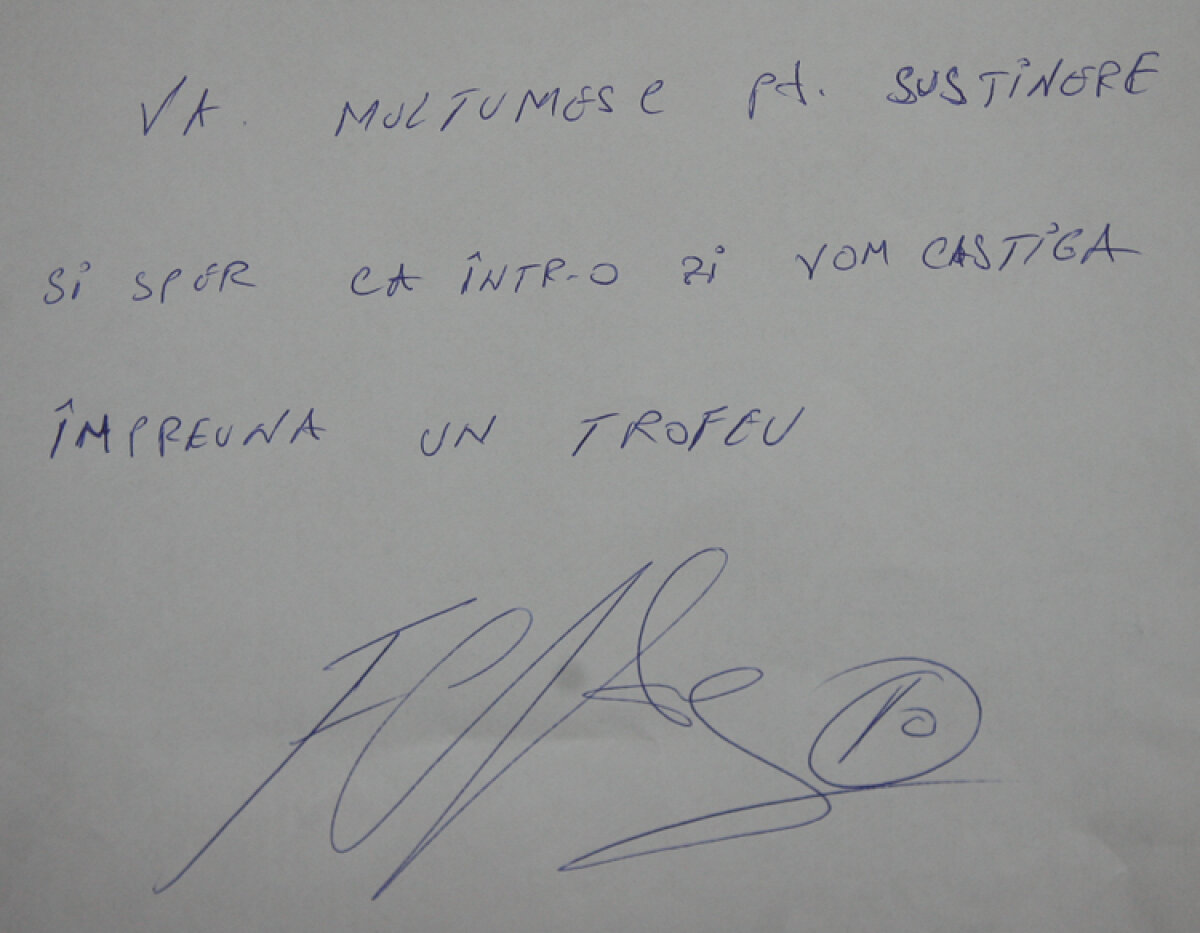 VA MULTUMESC pt. SUSTINERE
SI SPER CA ÎNTR-O ZI VOM CASTIGA
ÎMPREUNA UN TROFEU
10